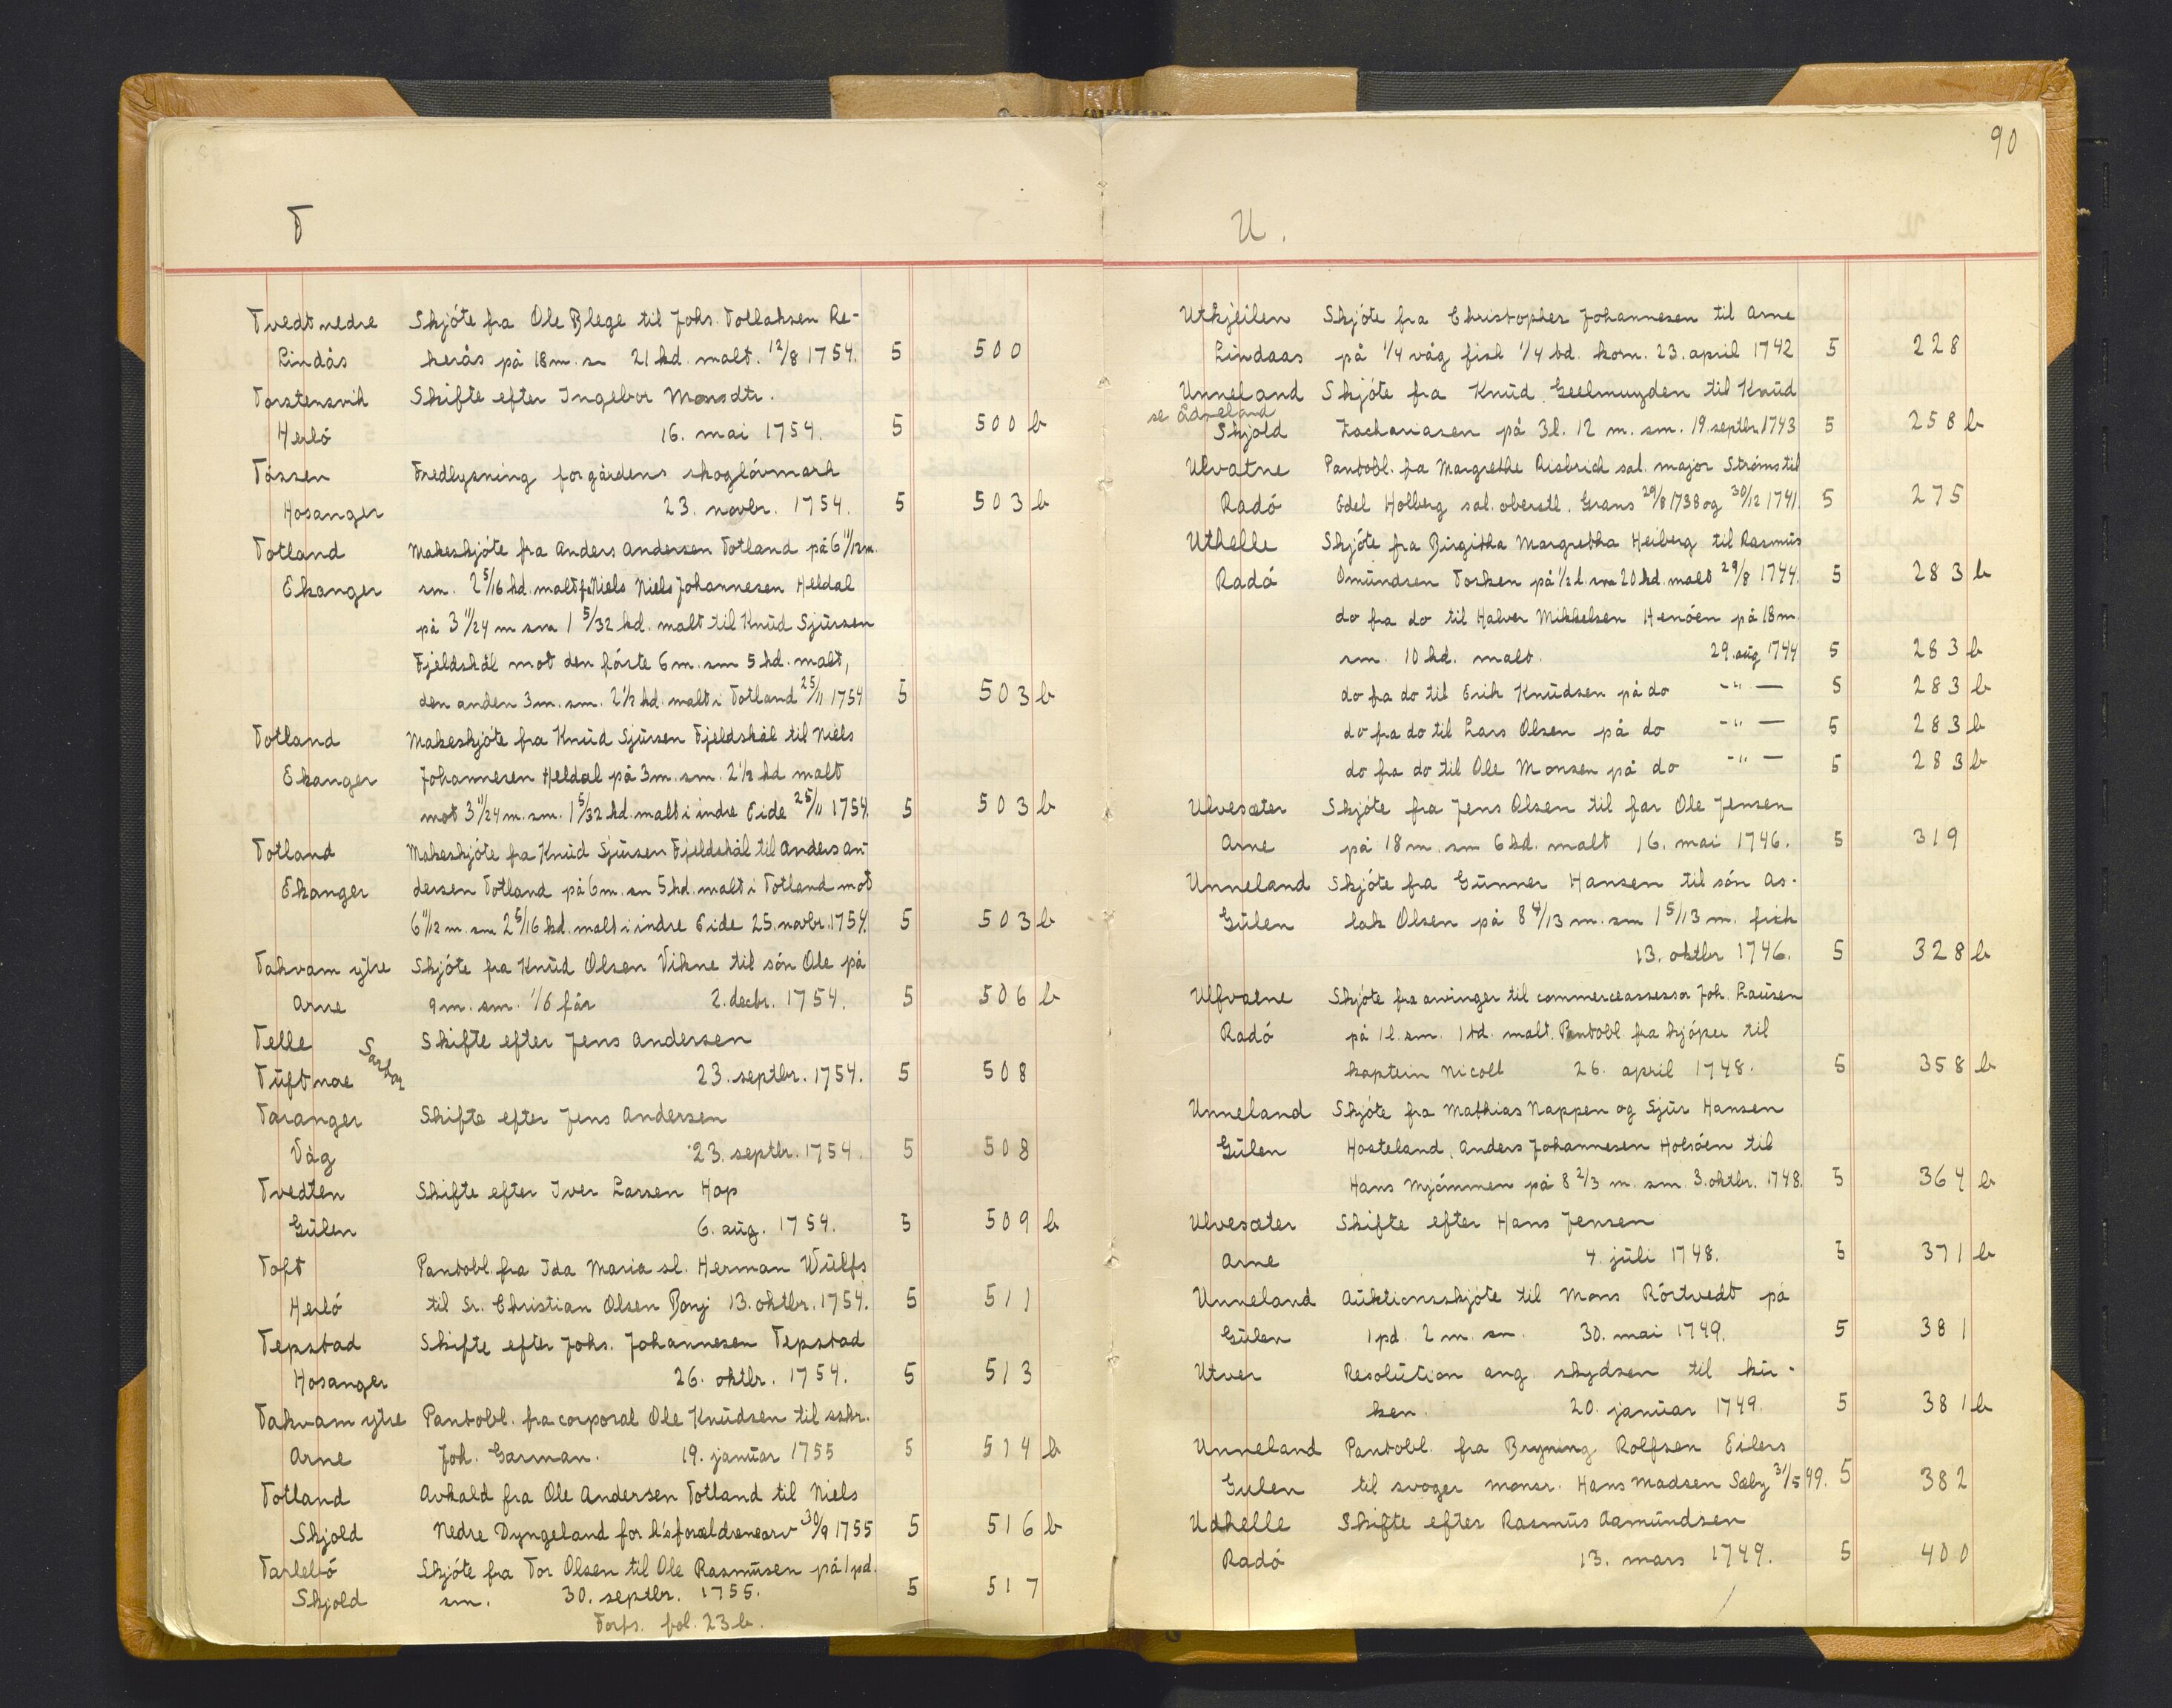 T
Tvedt nedre Skjöte fra Ole Blege til Johs. Tollaksen Re-
Lindås kerås på 18 m. sm 21 kd. malt. 12/8 1754. 5 500
Torstensvik Skifte efter Ingebor Monsdtr.
Herlö 16. mai 1754. 5 500 b
Tössen Fredlysning for gårdens skoglövmark
Hosanger 23. novbr. 1754. 5 503 b
Totland Makeskjöte fra Anders Andersen Totland på 6 11/12 m.
Ekanger sm. 2 5/16 kd. malt fr Niels Niels Johannesen Heldal
på 3 11/24 m sm 1 5/32 kd. malt til Knud Sjursen
Fjeldskål mot den förte 6 m. sm 5 kd. malt,
den anden 3 m. sm. 2 1/2 kd. malt i Totland 25/11 1754 5 503 b
Totland Makeskjöte fra Knud Sjursen Fjeldskål til Niels
Ekanger Johannesen Heldal på 3 m. sm. 2 1/2 kd malt
mot 3 11/24 m. sm. 1 5/32 kd. malt i indre Eide 25/11 1754. 5 503 b
Totland Makeskjöte fra Knud Sjursen Fjeldskål til Anders An-
Ekanger dersen Totland på 6 m. sm 5 kd. malt i Totland mot
6 11/12 m. sm 2 5/16 kd. malt i indre Eide 25. novbr. 1754. 5 503 b
Takvam ytre Skjöte fra Knud Olsen Vikne til sön Ole på
Arne 9 m. sm. 1/6 får 2. decbr. 1754. 5 506 b
Telle Skifte efter Jens Andersen
Tuftnae Sartor 23. septbr. 1754. 5 508
Taranger Skifte efter Jens Andersen
Våg 23. septbr. 1754. 5 508
Tvedten Skifte efter Iver Larsen Hop
Gulen 6. aug. 1754. 5 509 b
Toft Pantobl. fra Ida Maria sl. Herman Wulfs
Herlö til Sr. Christian Olsen Bonj 13. oktbr. 1754. 5 511
Tepstad Skifte efter Johs. Johannesen Tepstad
Hosanger 26. oktbr. 1754. 5 513
Takvam ytre Pantobl. fra corporal Ole Knudsen til sskr.
Arne Joh. Garman. 19. januar 1755 5 514 b
Totland Avkald fra Ole Andersen Totland til Niels
Skjold Nedre Dyngeland for h's forældrenearv 30/9 1755 5 516 b
Tarlebö Skjöte fra Tor Olsen til Ole Rasmusen på 1 pd.
Skjold sm. 30. septbr. 1755. 5 517
Forts. fol. 23 b.
90
U.
Utkjeilen Skjöte fra Christopher Johannesen til Arne
Lindaas på 1/4 våg fisk 1/4 td. korn. 23. april 1742 5 228
Unneland Skjöte fra Knud Geelmuyden til Knud
se Ådneland
Skjold Zachariasen på 3 l. 12 m. sm. 19. septbr. 1743 5 258 b
Ulvatne Pantobl. fra Margrethe Risbrich sal. major Ströms til
Radö Edel Holberg sal. oberstl. Grans 29/8 1738 og 30/12 1741. 5 275
Uthelle Skjöte fra Birgitha Margretha Heiberg til Rasmus
Radö Omundsen Tosken på 1/2 l. sm 20 kd. malt 29/8 1744. 5 283 b
do fra do til Halver Mikkelsen Henöen på 18 m.
sm. 10 kd. malt. 29. aug 1744 5 283 b
do fra do til Erik Knudsen på do -"- 5 283 b
do fra do til Lars Olsen på do -"- 5 283 b
do fra do til Ole Monsen på do -"- 5 283 b
Ulvesæter Skjöte fra Jens Olsen til far Ole Jensen
Arne på 18 m. sm 6 kd. malt 16. mai 1746. 5 319
Unneland Skjöte fra Gunner Hansen til sön As-
Gulen lak Olsen på 8 4/13 m. sm 1 5/13 m. fisk
13. oktbr 1746. 5 328 b
Ulfvatne Skjöte fra arvinger til commerceassessor Joh. Lausen
Radö på 1 l. sm. 1 td. malt. Pantobl. fra kjöper til
kaptein Nicoll 26. april 1748. 5 358 b
Unneland Skjöte fra Mathias Nappen og Sjur Hansen
Gulen Hosteland, Anders Johannesen Holsöen til
Hans Mjömmen på 8 2/3 m. sm 3. oktbr. 1748. 5 364 b
Ulvesæter Skifte efter Hans Jensen
Arne 4. juli 1748. 5 371 b
Unneland Auktionsskjöte til Mons Rörtvedt på
Gulen 1 pd. 2 m. sm. 30. mai 1749. 5 381
Utver Resolution ang. skydsen til kir-
ken. 20. januar 1749. 5 381 b
Unneland Pantobl. fra Bryning Rolfsen Eilers
Gulen til svoger monsr. Hans Madsen Sæby 31/5 49. 5 382
Udhelle Skifte efter Rasmus Aamundsen
Radö 13. mars 1749. 5 400